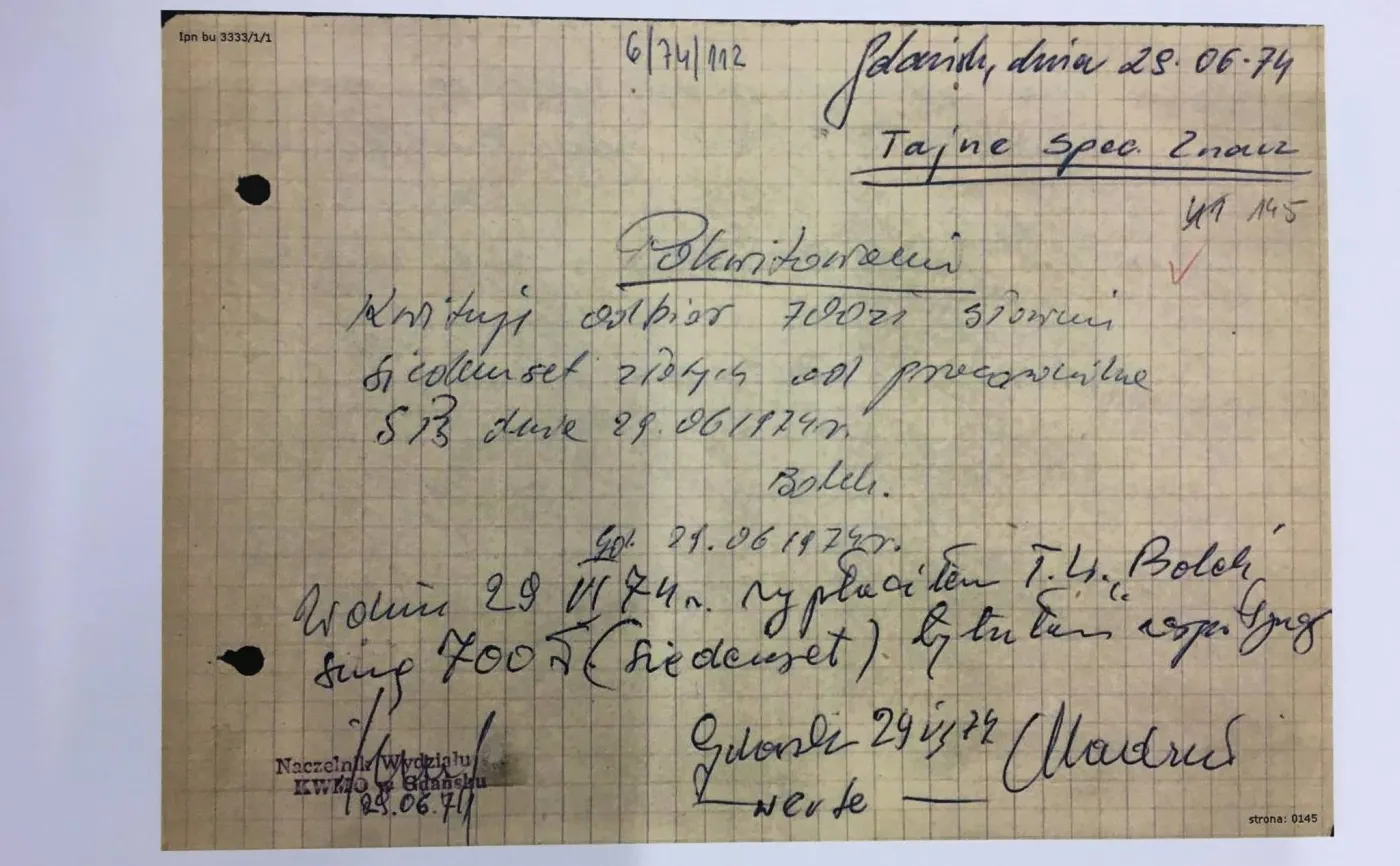 Ipn bu 3333/1/1
6/74/112
Gdańsk, dnia 29.06.74
Tajne spec. znacz
145
Pokwitowanie
Kwituję odbiór 700zł słowni
siedemset złotych od pracownika
SB dnia 29.061974r.
Bolek.
Gd. 29.061974r.
W dniu 29 VI 74r. wypłaciłem T.W. „Bolek"
sumę 700 zł (siedemset). Tytułem
Gdańsk 29 VI 74
Naczelnik Wydziału
KWMO w Gdańsku
29.06.74
verte
strona: 0145